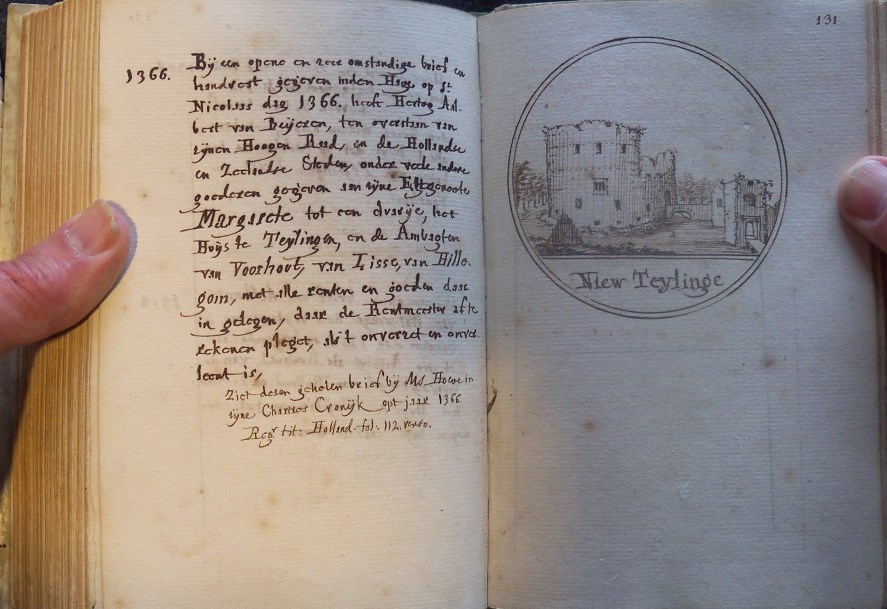 1366.
Bij een opene en zeer omstandige brief en
handvest gegeven inden Hage op St
Nicolaas dag 1366. heeft Hertog Aal-
bert van Beijeren, ten overstaan van
zijnen Hoogen Raed, en de Hollandse
en Zeelandse Steden, onder vele andere
goederen gegeven aan zijne Egtgenoote
Margarete tot een duarije, het
Huijs te Teylingen, en de Ambagten
van Voorhout, van Lisse, van Hille-
gom, met alle renten en goeden daar
in gelegen, daar de Rentmeester af te
rekenen pleget, als't onverzet en onver-
leent is,
Ziet desen geheelen brief bij Ms. Hoeve in
zijne Chartres Cronijk opt jaar 1366
Regr tit: Holland. fol: 112. verso.
131
Niew Teylinge